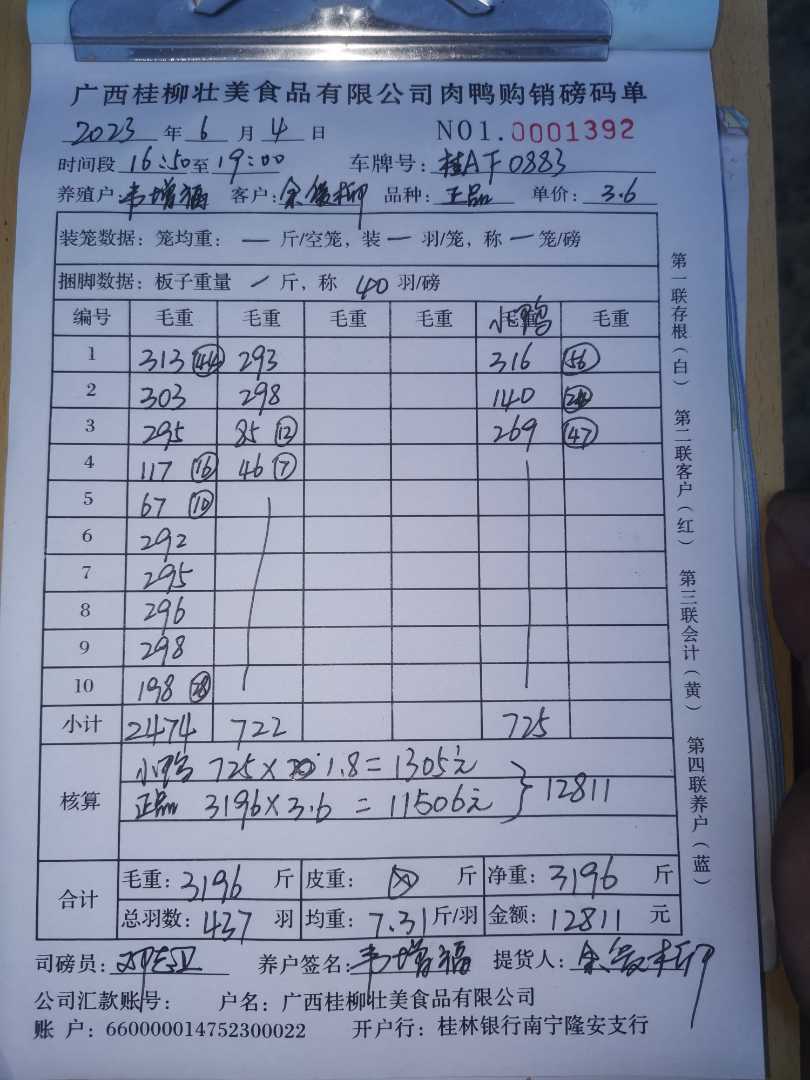 广西桂柳壮美食品有限公司肉鸭购销磅码单
2023 年 6 月 4 日 NO1.0001392
时间段 16:50 至 19:00 车牌号: 桂AF0883
养殖户: 韦增福 客户: 品种: 正品 单价: 3.6
装笼数据: 笼均重: — 斤/空笼, 装 — 羽/笼, 称 — 笼/磅
捆脚数据: 板子重量 / 斤, 称 40 羽/磅
编号 毛重 毛重 毛重 毛重 小鸭 毛重
1 313 (44) 293 316 (56)
2 303 298 140
3 295 85 (12) 269 (47)
4 117 (16) 46 (7)
5 67 (10)
6 292
7 295
8 296
9 298
10 198 (28)
小计 2474 722 725
核算 小鸭 725×1.8=1305元
正品 3196×3.6=11506元 } 12811
合计 毛重: 3196 斤 皮重: 斤 净重: 3196 斤
总羽数: 437 羽 均重: 7.31 斤/羽 金额: 12811 元
司磅员: 养户签名: 韦增福 提货人:
公司汇款账号: 户名: 广西桂柳壮美食品有限公司
账 户: 660000014752300022 开户行: 桂林银行南宁隆安支行
第一联存根(白) 第二联客户(红) 第三联会计(黄) 第四联养户(蓝)